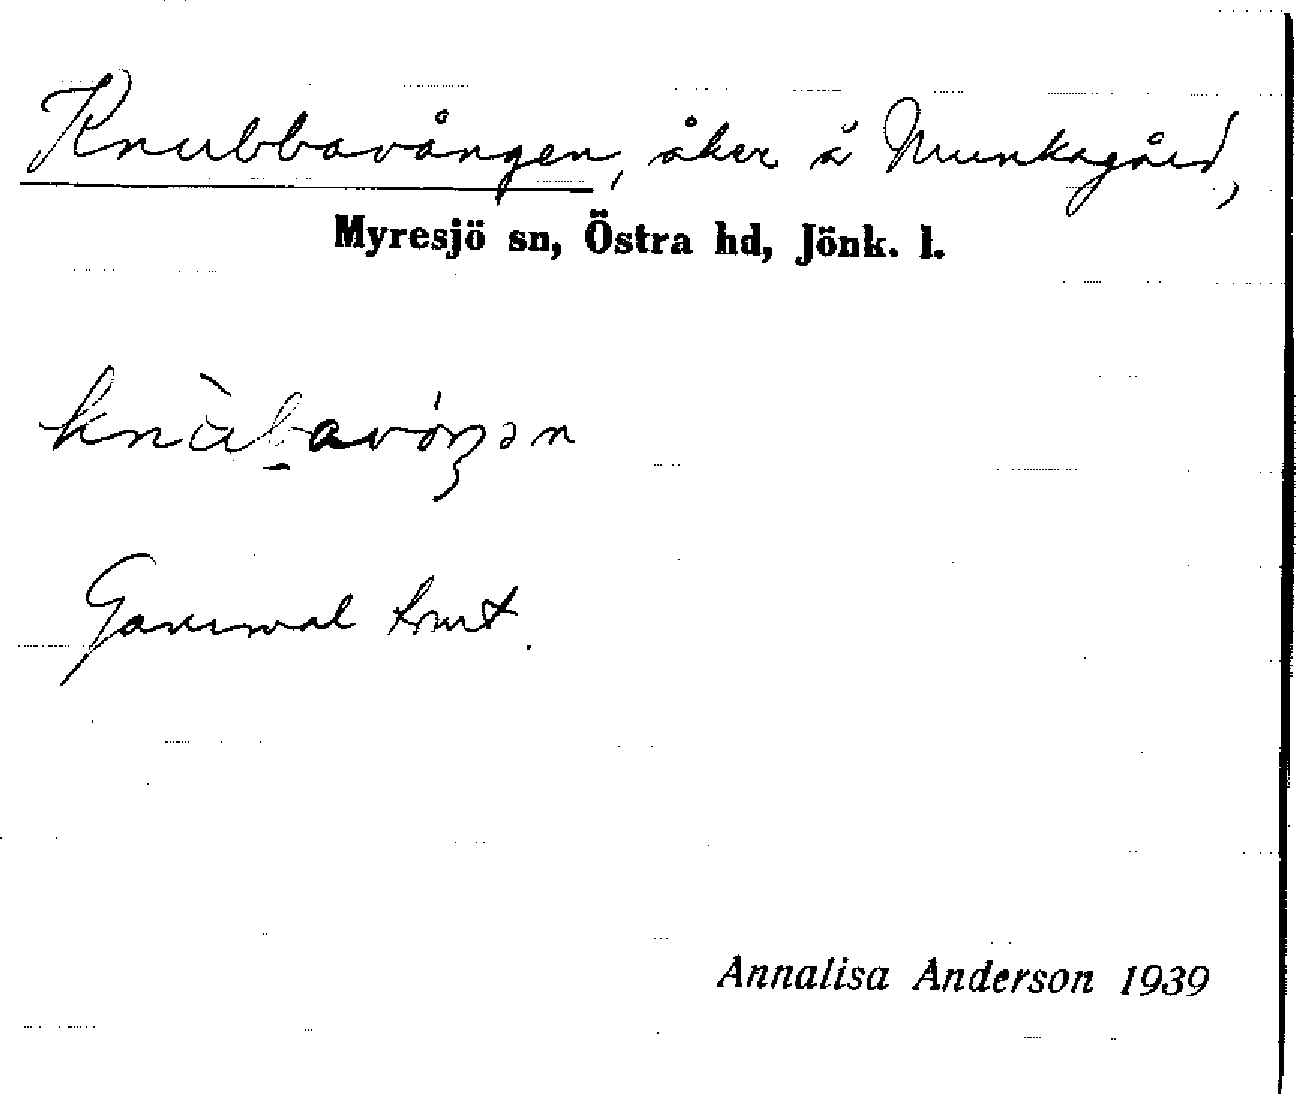 Knubbavången, åker å Munkagård,
Myresjö sn, Östra hd, Jönk. l.
knùb̠avóŋən
Gammal tomt.
Annalisa Anderson 1939